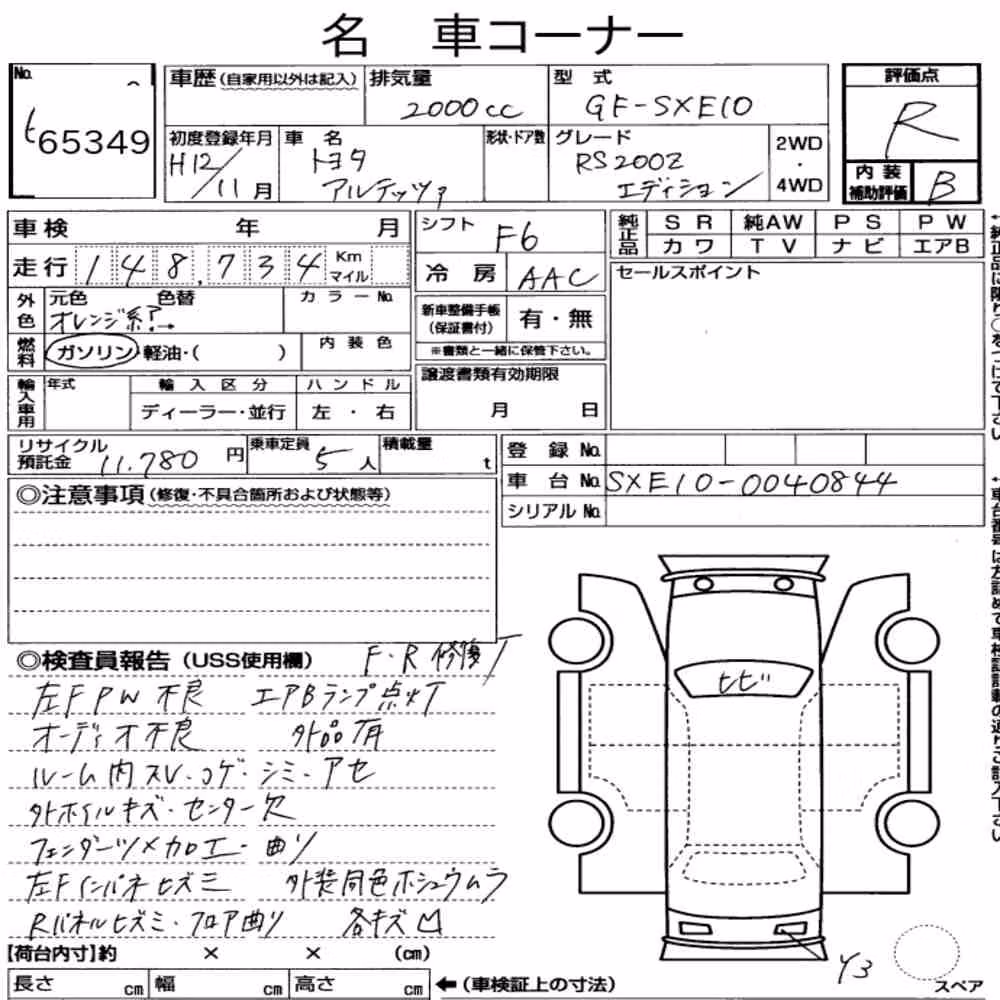 名 車コーナー
No.
t65349
車歴(自家用以外は記入)
排気量
2000cc
型 式
GF-SXE10
評価点
R
初度登録年月
H12/11月
車 名
トヨタ
アルテッツァ
形状・ドア数
グレード
RS200Z
エディション
2WD
・
4WD
内 装
補助評価
B
車検 年 月
走行 148,734 Km
マイル
シフト F6
冷 房 AAC
純正品
SR 純AW PS PW
カワ TV ナビ エアB
セールスポイント
外色
元色 色替
オレンジ系?→
カラーNo.
新車整備手帳
(保証書付)
有・無
※書類と一緒に保管下さい。
燃料
ガソリン・軽油・( )
内装色
譲渡書類有効期限
月 日
輸入車用
年式
輸入区分
ハンドル
ディーラー・並行
左・右
リサイクル
預託金
11.780円
乗車定員
5人
積載量
t
登 録 No.
車 台 No. SXE10-0040844
シリアル No.
◎注意事項(修復・不具合箇所および状態等)
◎検査員報告(USS使用欄) F・R修復
左FPW不良 エアBランプ点灯
オーディオ不良 外品有
ルーム内スレ・コゲ・シミ・アセ
外ホイルキズ・センター欠
フェンダーツメカロエ・曲リ
左Fインパネヒズミ 外装同色ホシュウムラ
Rパネルヒズミ・フロア曲リ 各キズ凹
ヒビ
Y3
スペア
【荷台内寸】約 × × (cm)
長さ cm 幅 cm 高さ cm
←(車検証上の寸法)